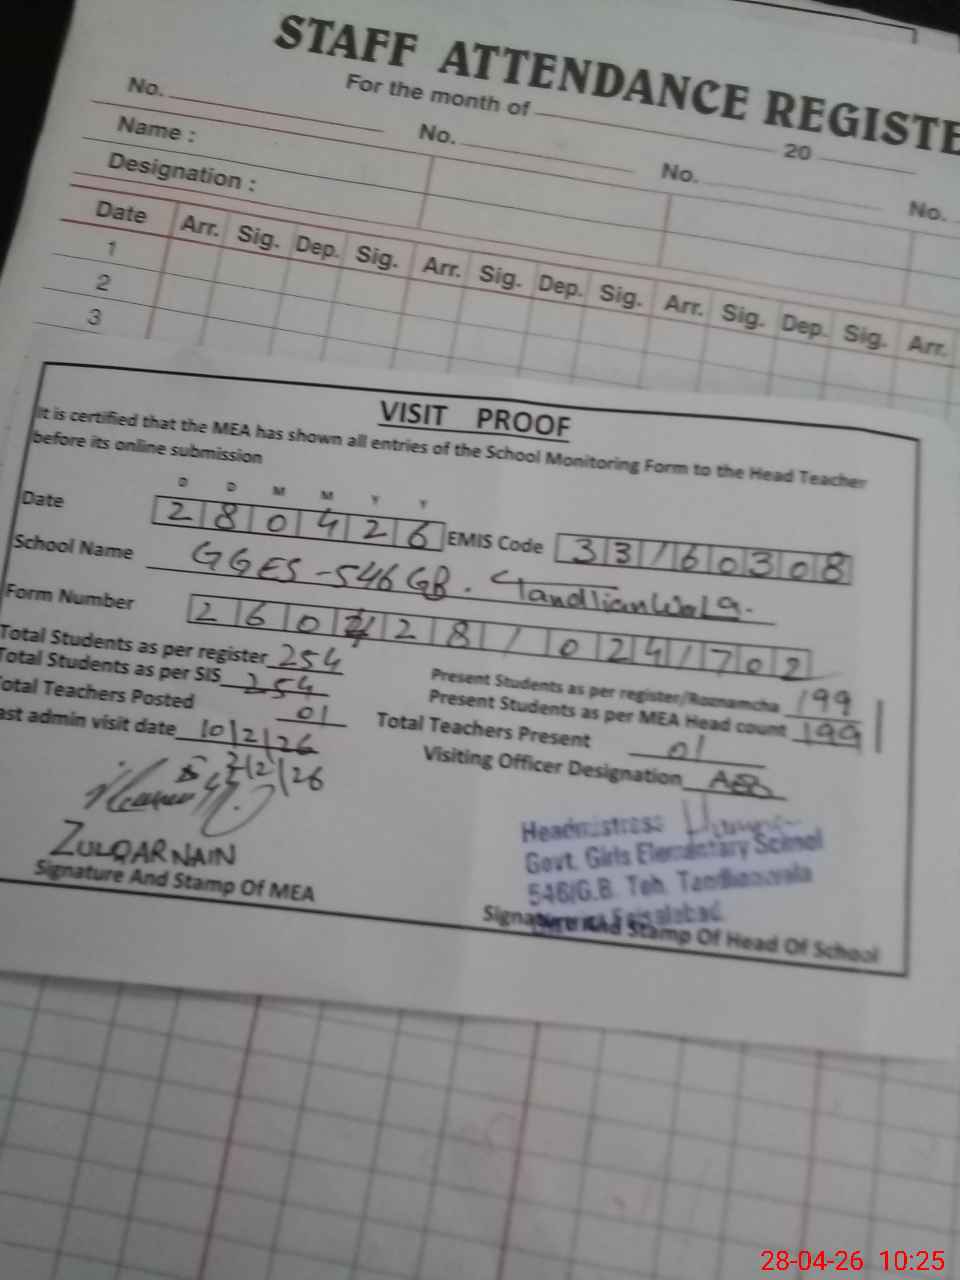 STAFF ATTENDANCE REGISTE
For the month of 20
No. No. No. No.
Name :
Designation :
Date Arr. Sig. Dep. Sig. Arr. Sig. Dep. Sig. Arr. Sig. Dep. Sig. Arr.
1
2
3
VISIT PROOF
It is certified that the MEA has shown all entries of the School Monitoring Form to the Head Teacher
before its online submission
D D M M Y Y
Date 280426 EMIS Code 33160308
School Name GGES-546 GB. Tandlianwala.
Form Number 26042810241702
Total Students as per register 254
Total Students as per SIS 254
Present Students as per register/Roznamcha 199
Present Students as per MEA Head count 199
Total Teachers Posted 01
Total Teachers Present 01
ast admin visit date 10/2/26
2/2/26
Visiting Officer Designation
ZULQARNAIN
Signature And Stamp Of MEA
Headmistress
Govt. Girls Elementary School
546/G.B. Teh. Tandlianwala
Faisalabad
Signature And Stamp Of Head Of School
28-04-26 10:25